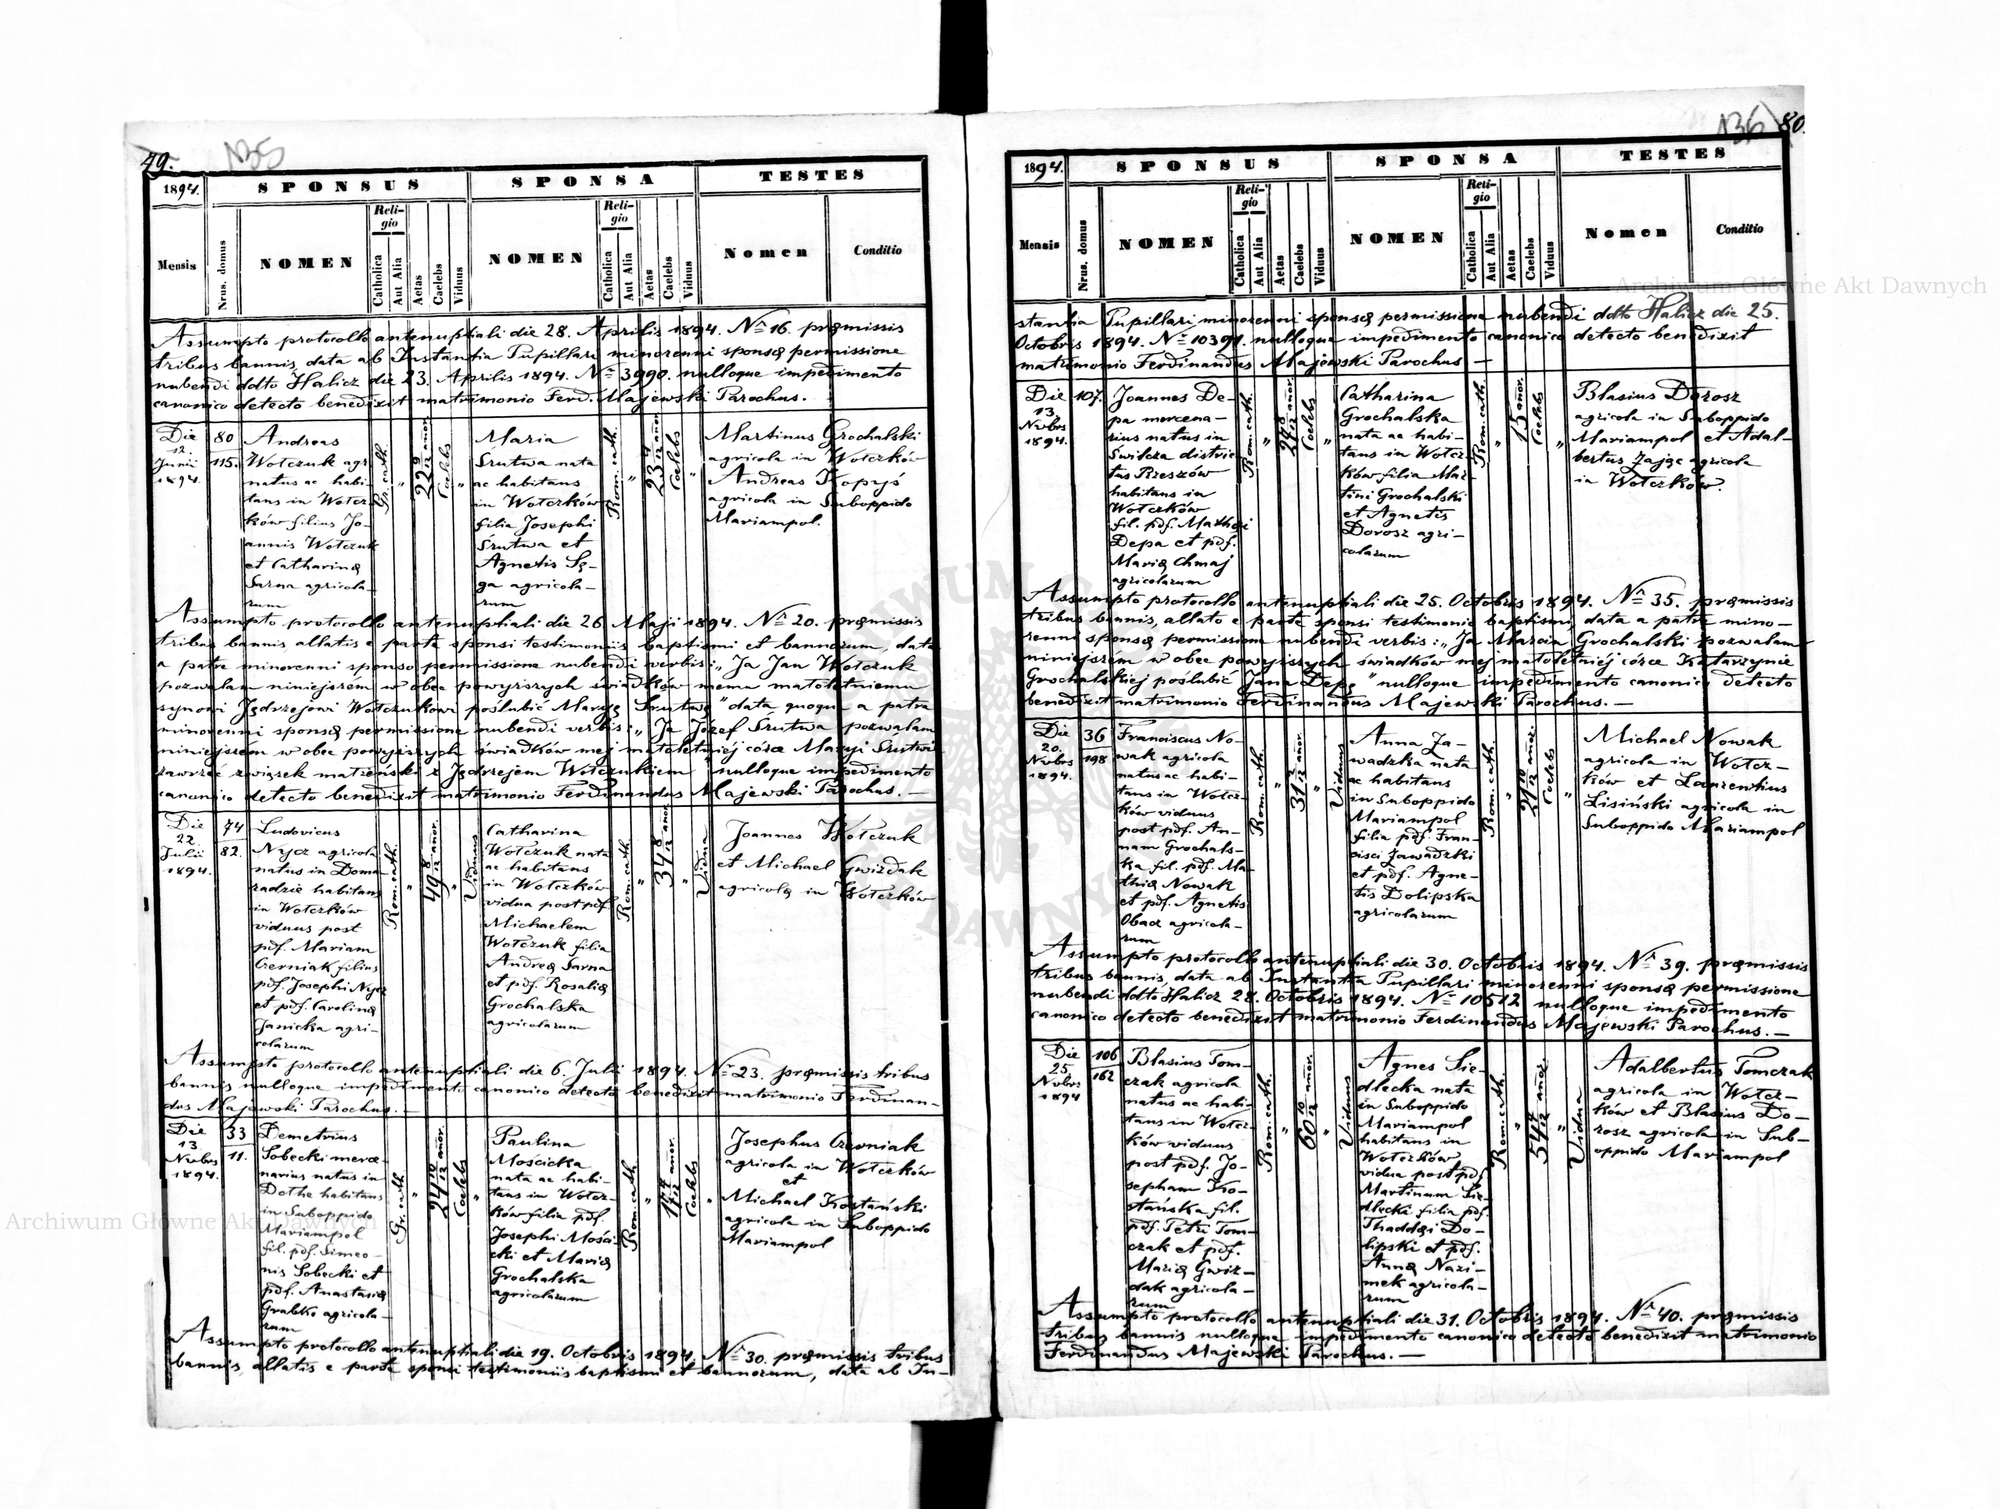 79.
135
1894.
SPONSUS
SPONSA
TESTES
Mensis
Nrus. domus
NOMEN
Religio
Catholica
Aut Alia
Aetas
Caelebs
Viduus
NOMEN
Religio
Catholica
Aut Alia
Aetas
Caelebs
Viduus
Nomen
Conditio
Assumpto protocollo antenuptiali die 28. Aprilis 1894. No 16. præmissis
tribus bannis, data ab Instantia Pupillari minorenni sponsæ permissione
nubendi ddto Halicz die 23. Aprilis 1894. No 3990. nulloque impedimento
canonico detecto benedixit matrimonio Ferd. Majewski Parochus.
Die
12.
Junii
1894.
80
115.
Andreas
Wołczuk agr.
natus ac habi-
tans in Wołcz
ków filius Jo-
annis Wołczuk
et Catharinæ
Sarna agricola-
rum
Gr. cath.
"
22 9/12 añor.
Coelebs
"
Maria
Śrutwa nata
ac habitans
in Wołczków
filia Josephi
Śrutwa et
Agnetis Sę-
ga agricola-
rum
Rom. cath.
"
23 4/12 añor.
Coelebs
"
Martinus Grochalski
agricola in Wołczków
Andreas Kopyś
agricola in Suboppido
Mariampol.
Assumpto protocollo antenuptiali die 26. Maji 1894. No 20. præmissis
tribus bannis allatis e parte sponsi testimoniis baptismi et bannorum, data
a patre minorenni sponso permissione nubendi verbis: „Ja Jan Wołczuk
pozwalam niniejszém w obec powyższych świadków memu małoletniemu
synowi Jędrzejowi Wołczukowi poślubić Maryę Śrutwę" data quoque a patre
minorenni sponsæ permissione nubendi verbis: „Ja Józef Śrutwa pozwalam
niniejszem w obec powyższych świadków mej małoletniej córce Maryi Śrutwi
zawrzeć związek małżeński z Jędrzejem Wołczukiem" nulloque impedimento
canonico detecto benedixit matrimonio Ferdinandus Majewski Parochus. —
Die
22
Julii
1894.
74
82.
Ludovicus
Nycz agricola
natus in Doma
radzie habitans
in Wołczków
viduus post
pdf. Mariam
Czerniak filius
pdf. Josephi Nycz
et pdf. Carolinæ
Janicka agri-
colarum
Rom. cath.
"
49 8/12 añor.
"
Viduus
Catharina
Wołczuk nata
ac habitans
in Wołczków
vidua post pdf.
Michaelem
Wołczuk filia
Andreæ Sarna
et pdf. Rosaliæ
Grochalska
agricolarum
Rom. cath.
"
34 8/12 añor.
"
Vidua
Joannes Wołczuk
et Michael Gwizdak
agricolæ in Wołczków
Assumpto protocollo antenuptiali die 6. Julii 1894. No 23. præmissis tribus
bannis nulloque impedimento canonico detecto benedixit matrimonio Ferdinan-
dus Majewski Parochus. —
Die
13
Nvbrs
1894.
33
11.
Demetrius
Sobecki merce-
narius natus in
Dothe habitans
in Suboppido
Mariampol
fil. pdf. Simeo-
nis Sobecki et
pdf. Anastasiæ
Grabko agricola-
rum
Gr. cath.
"
24 10/12 añor.
Coelebs
"
Paulina
Mościcka
nata ac habi-
tans in Wołcz-
ków filia pdf.
Josephi Mości-
cki et Mariæ
Grochalska
agricolarum
Rom. cath.
"
Coelebs
"
Josephus Czerniak
agricola in Wołczków
et
Michael Kostański
agricola in Suboppido
Mariampol
Assumpto protocollo antenuptiali die 19. Octobris 1894. No 30. præmissis tribus
bannis, allatis e parte sponsi testimoniis baptismi et bannorum, data ab In-
136
80.
1894.
SPONSUS
SPONSA
TESTES
Mensis
Nrus. domus
NOMEN
Religio
Catholica
Aut Alia
Aetas
Caelebs
Viduus
NOMEN
Religio
Catholica
Aut Alia
Aetas
Caelebs
Viduus
Nomen
Conditio
stantia Pupillari minorenni sponsæ permissione nubendi ddto Halicz die 25.
Octobris 1894. No 10391. nulloque impedimento canonico detecto benedixit
matrimonio Ferdinandus Majewski Parochus —
Die
13
Nvbrs
1894.
107.
Joannes De-
pa mercena-
rius natus in
Świlcza distric-
tus Rzeszów
habitans in
Wołczków
fil. pdf. Mathæi
Depa et pdf.
Mariæ Chmaj
agricolarum
Rom. cath.
"
27 8/12 añor.
Coelebs
"
Catharina
Grochalska
nata ac habi-
tans in Wołcz-
ków filia Mar-
tini Grochalski
et Agnetis
Dorosz agri-
colarum
Rom. cath.
"
15 añor.
Coelebs
"
Blasius Dorosz
agricola in Suboppido
Mariampol et Adal-
bertus Zając agricola
in Wołczków.
Assumpto protocollo antenuptiali die 25. Octobris 1894. No 35. præmissis
tribus bannis, allato e parte sponsi testimonio baptismi, data a patre mino-
renni sponsæ permissione nubendi verbis: „Ja Marcin Grochalski pozwalam
niniejszem w obec powyższych świadków mej małoletniéj córce Katarzynie
Grochalskiej poślubić Jana Depę" nulloque impedimento canonico detecto
benedixit matrimonio Ferdinandus Majewski Parochus. —
Die
20.
Nvbrs
1894.
36
198
Franciscus No-
wak agricola
natus ac habi-
tans in Wołcz-
ków viduus
post pdf. An-
nam Grochals-
ka fil. pdf. Ma-
thiæ Nowak
et pdf. Agnetis
Obacz agricola-
rum
Rom. cath.
"
31 2/12 añor.
"
Viduus
Anna Za-
wadzka nata
ac habitans
in Suboppido
Mariampol
filia pdf. Fran-
cisci Zawadzki
et pdf. Agne-
tis Dolipska
agricolarum
Rom. cath.
"
21 10/12 añor.
Coelebs
"
Michael Nowak
agricola in Wołcz-
ków et Laurentius
Lisiński agricola in
Suboppido Mariampol
Assumpto protocollo antenuptiali die 30. Octobris 1894. No 39. præmissis
tribus bannis, data ab Instantia Pupillari minorenni sponsæ permissione
nubendi ddto Halicz 28. Octobris 1894. No 10512 nulloque impedimento
canonico detecto benedixit matrimonio Ferdinandus Majewski Parochus. —
Die
25.
Nvbrs
1894
106
162
Blasius Tom-
czak agricola
natus ac habi-
tans in Wołcz-
ków viduus
post pdf. Jo-
sepham Ko-
stańska fil.
pdf. Petri Tom-
czak et pdf.
Mariæ Gwiz-
dak agricola-
rum
Rom. cath.
"
60 10/12 añor.
"
Viduus
Agnes Sie-
dlecka nata
in Suboppido
Mariampol
habitans in
Wołczków
vidua post pdf.
Martinum Sie-
dlecki filia pdf.
Thaddæi Do-
lipski et pdf.
Annæ Nazi-
mek agricola-
rum
Rom. cath.
"
54 4/12 añor.
"
Vidua
Adalbertus Tomczak
agricola in Wołcz-
ków et Blasius Do-
rosz agricola in Sub-
oppido Mariampol
Assumpto protocollo antenuptiali die 31. Octobris 1894. No 40. præmissis
tribus bannis nulloque impedimento canonico detecto benedixit matrimonio
Ferdinandus Majewski Parochus. —
Archiwum Główne Akt Dawnych
Archiwum Główne Akt Dawnych